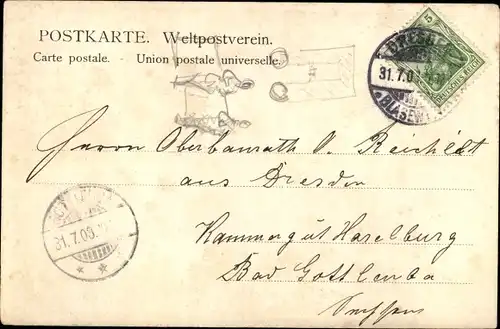 POSTKARTE. Weltpostverein.
Carte postale. - Union postale universelle.
5
DRESDEN
31.7.0
BLASEW
Herrn Oberbaurath O. Reichelt
aus Dresden
31.7.03.
Kammergut Haselburg
Bad Gottleuba
Sachsen